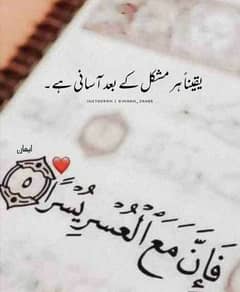 یقیناً ہر مشکل کے بعد آسانی ہے۔
ایمان
فَإِنَّ مَعَ الْعُسْرِ يُسْرًا ٥